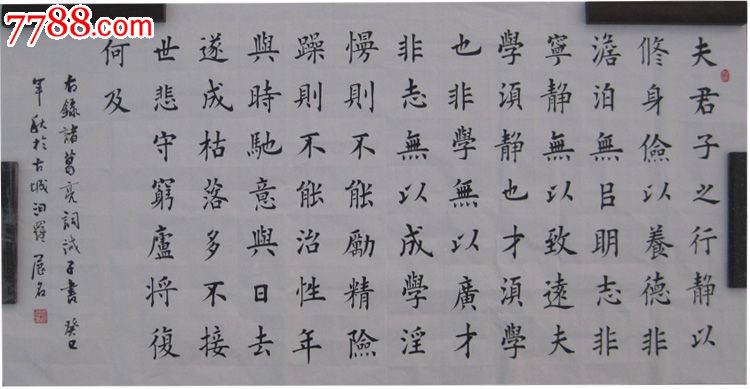 7788.com
中国收藏热线
夫君子之行静以
修身儉以養德非
澹泊無㠯明志非
寧静無以致遠夫
學須静也才須學
也非學無以廣才
非志無以成學淫
慢則不能勵精險
躁則不能治性年
與時馳意與日去
遂成枯落多不接
世悲守窮廬将復
何及
右錄諸葛亮詞诫子書 癸巳
年秋於古城汨羅